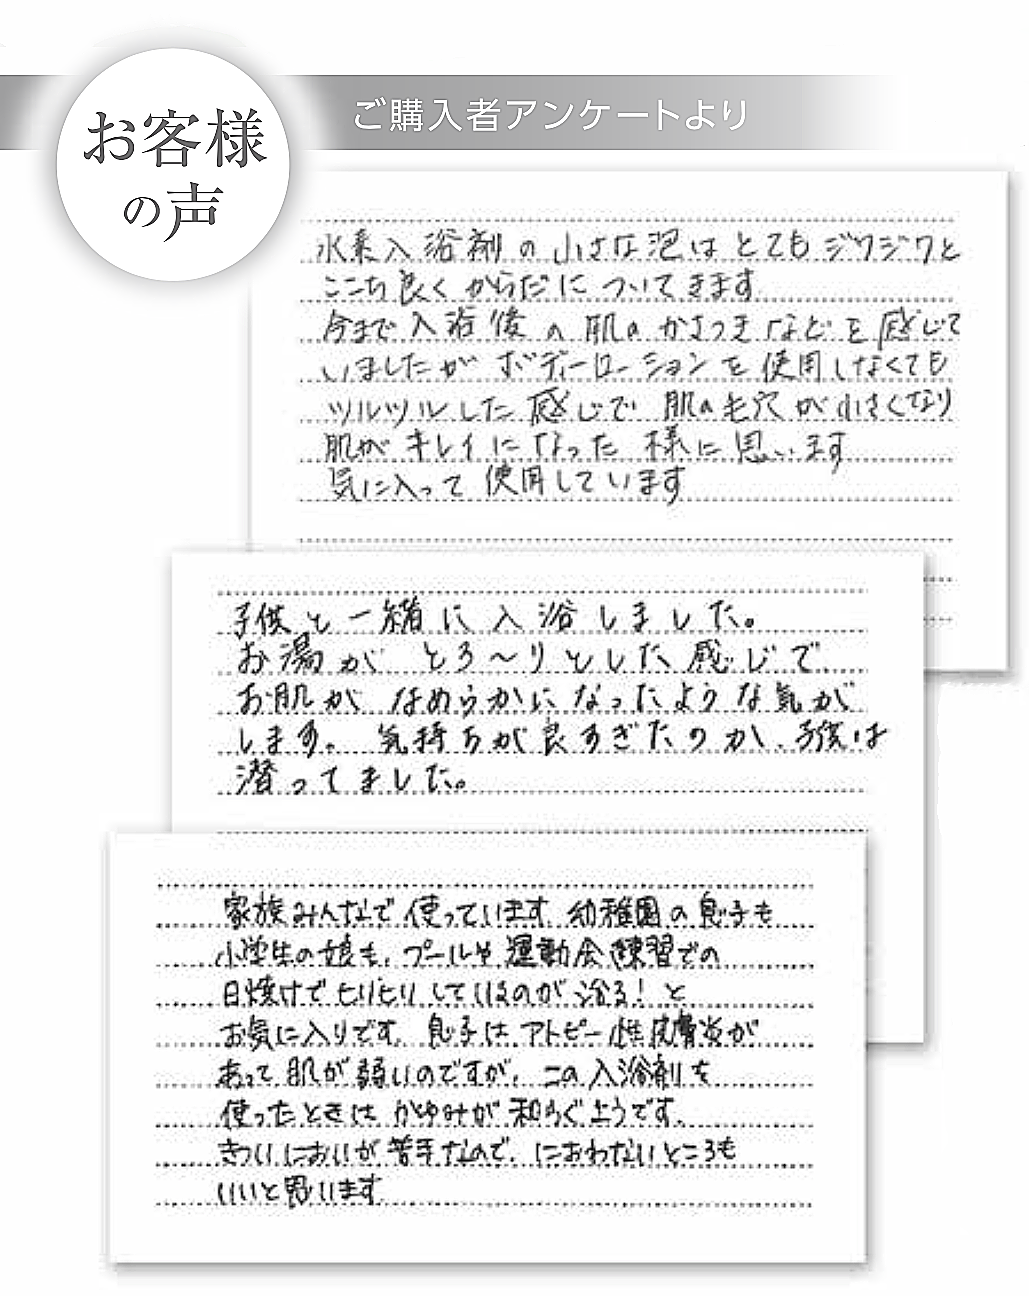 お客様
の声
ご購入者アンケートより
水素入浴剤の小さな泡はとてもジワジワと
ここち良くからだについてきます
今まで入浴後の肌のかさつきなどを感じて
いましたがボディーローションを使用しなくても
ツルツルした感じで肌の毛穴が小さくなり
肌がキレイになった様に思います
気に入って使用しています
子供と一緒に入浴しました。
お湯がとろ〜りとした感じで
お肌がなめらかになったような気が
します。気持ちが良すぎたのか、子供は
潜ってました。
家族みんなで使っています。幼稚園の息子も
小学生の娘も、プールや運動会練習での
日焼けでヒリヒリしているのが治る!と
お気に入りです。息子はアトピー性皮膚炎が
あって肌が弱いのですが、この入浴剤を
使ったときはかゆみが和らぐようです。
きついにおいが苦手なので、におわないところも
いいと思います